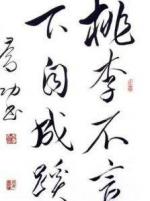 桃李不言
下自成蹊
启功书